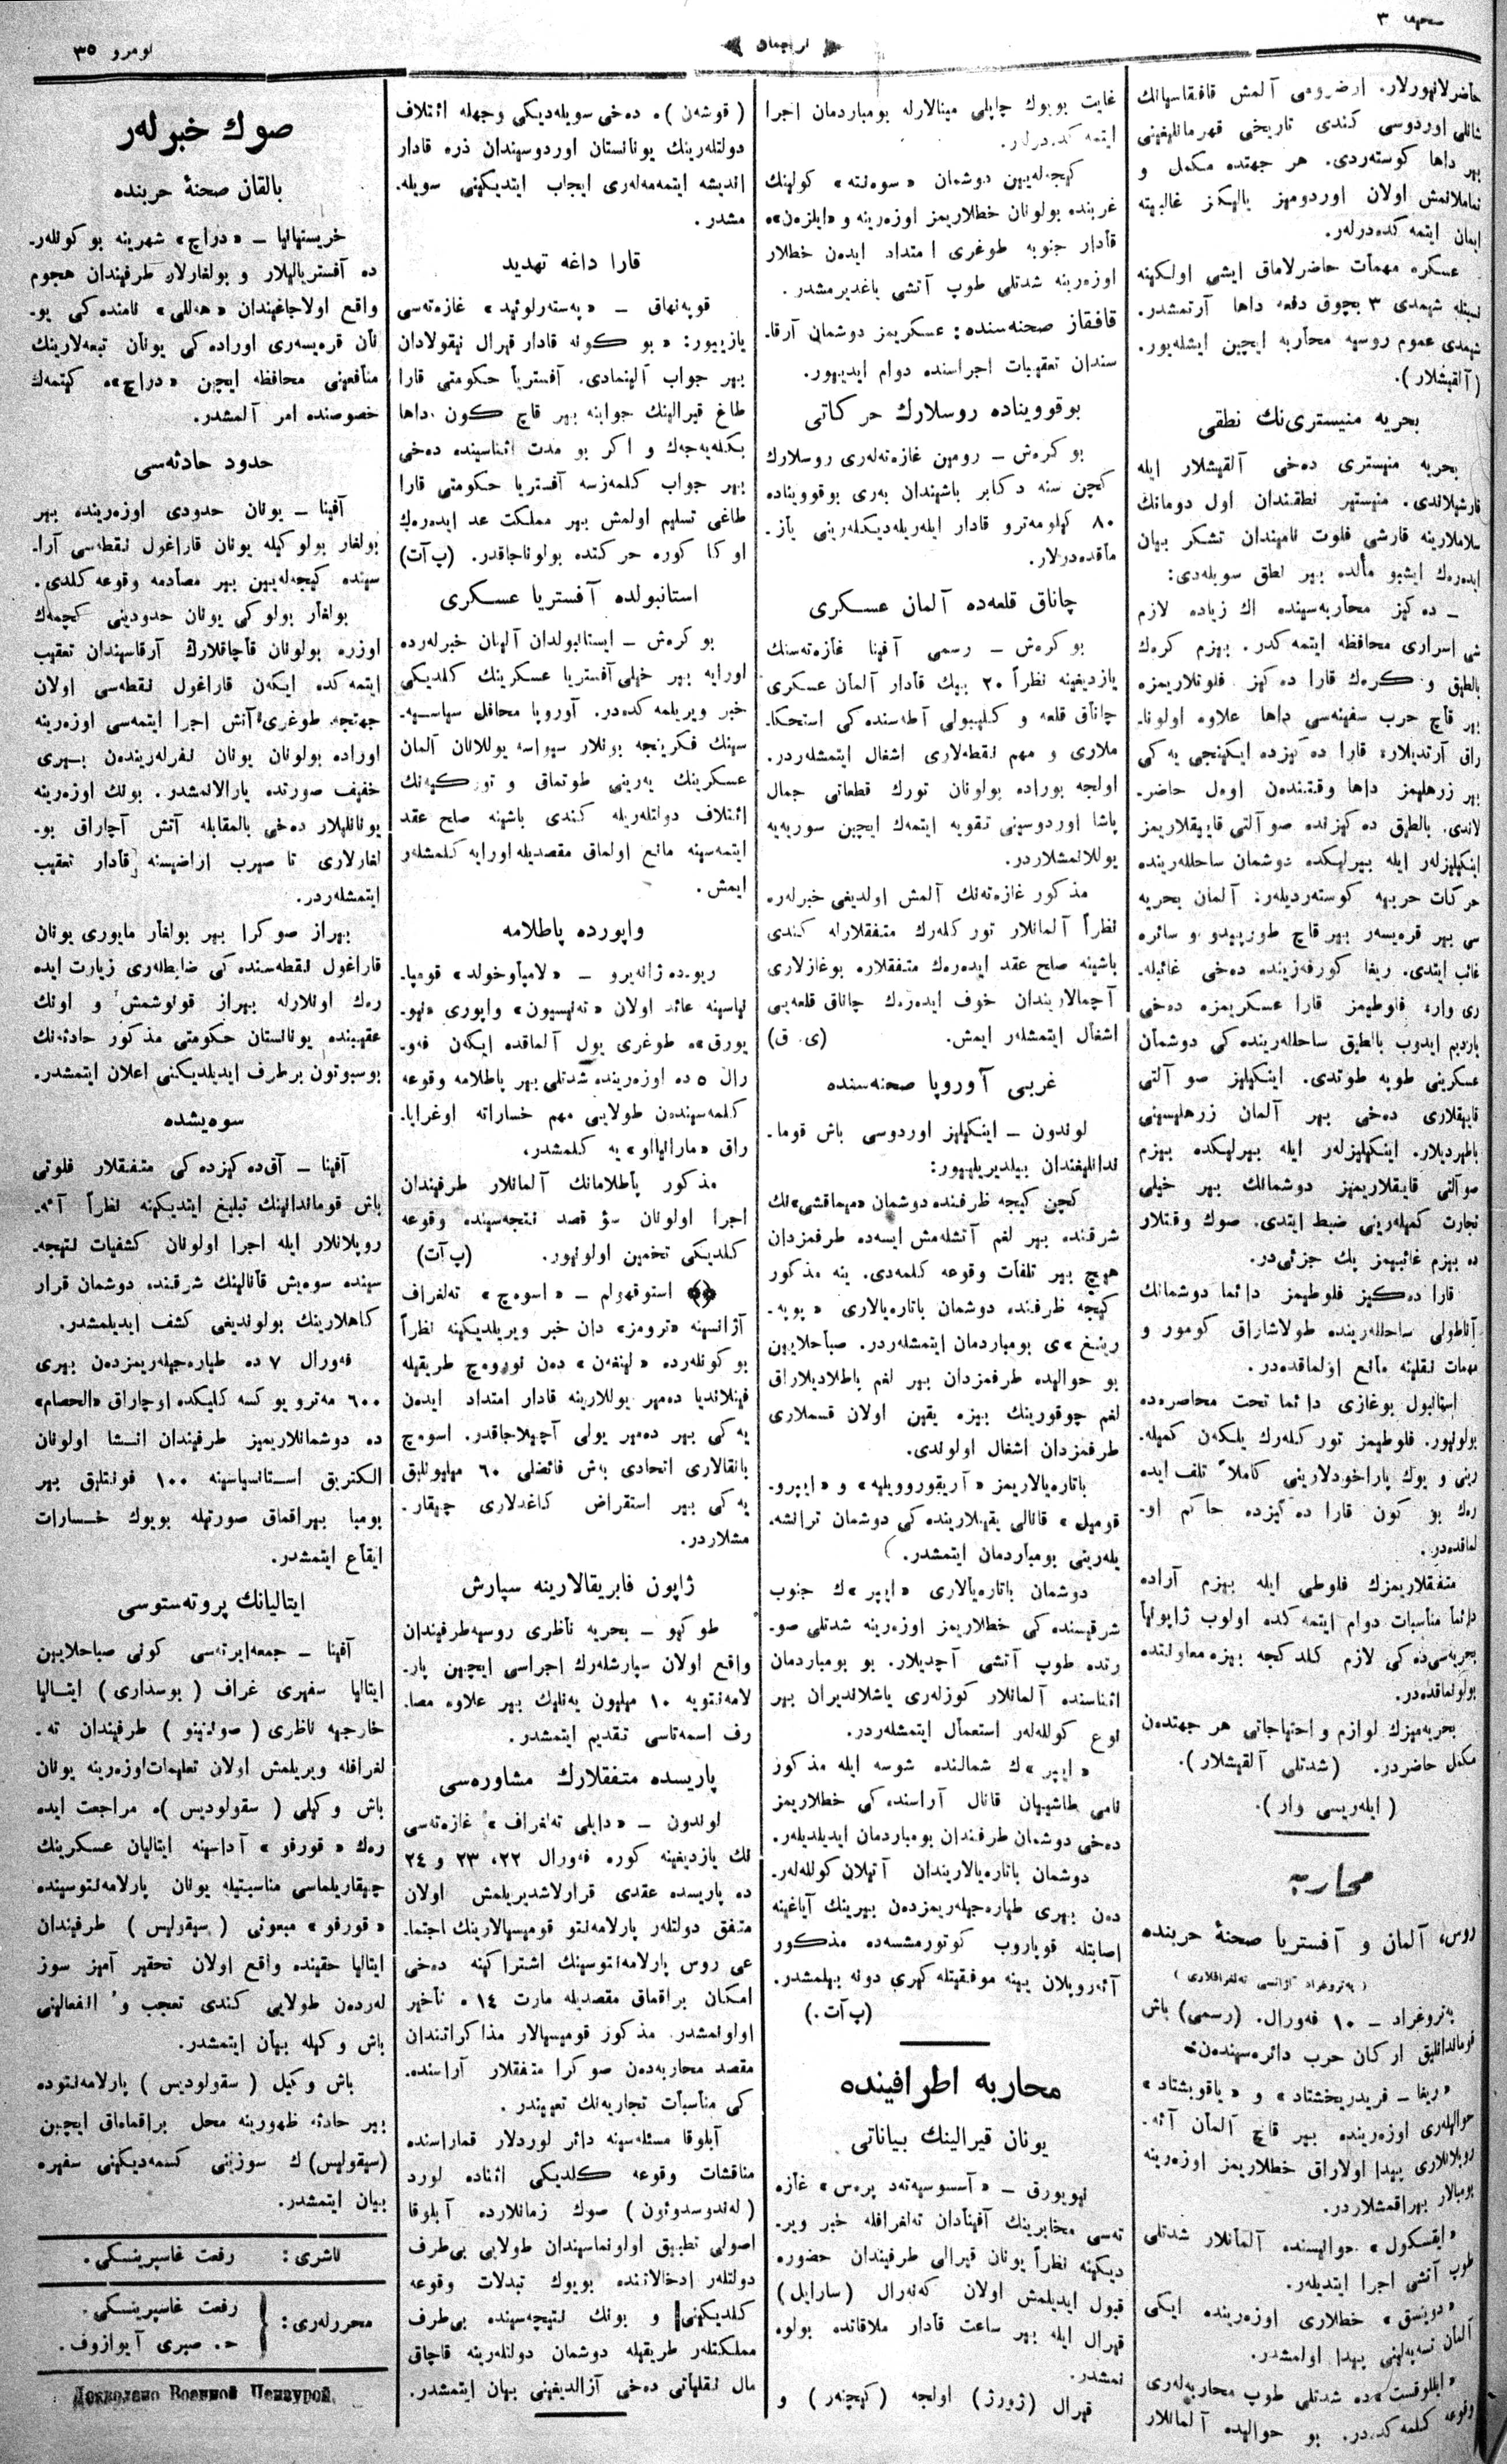 صحیفه ۳
ترجمان
نومرو ۳۵
حاضرلانیورلار. ارضرومی آلمش قافقاسیانك
شانلی اوردوسی كندی تاریخی قهرمانلیغینی
بیر داها كوستەردی. هر جهتده مكمل و
تماملانمش اولان اوردومیز یالیكز غالبیته
ایمان ایتمه كدەدرلەر.
عسكره مهمات حاضرلاماق ایشی اولكینه
نسبتله شیمدی ۳ بچوق دفعه داها آرتمشدر.
شیمدی عموم روسیه محاربه ایچین ایشلەیور.
(آلقیشلار).
بحریه منیستری‌نك نطقی
بحریه منیستری دەخی آلقیشلار ایله
قارشیلاندی. منیستیر نطقندان اول دومانك
سلاملارینه قارشی فلوت نامیندان تشكر بیان
ایدەرەك ایشبو مألده بیر نطق سویلەدی:
ــ دەكیز محاربەسینده اك زیاده لازم
شی اسراری محافظه ایتمه كدر. بیزم كرەك
بالطیق و كرەك قارا دەكیز فلوتلاریمزه
بیر قاچ حرب سفینەسی داها علاوه اولونا۔
راق آرتدیلار. قارا دەكیزده ایكینجی یەكی
بیر زرهلیمز داها وقتندەن اوەل حاضر۔
لاندی. بالطیق دەكیزنده صو آلتی قاییقلاریمز
اینكیلیزلەر ایله بیرلیكده دوشمان ساحللەرینده
حركات حربیه كوستەردیلەر: آلمان بحریه
سی بیر قرەیسەر بیر قاچ طورپیدو و سائره
غائب ایتدی. ریغا كورفەزینده دەخی غائبله۔
ری وار. فلوطیمز قارا عسكریمزه دەخی
یاردیم ایدوب بالطیق ساحللەرینده كی دوشمان
عسكرینی طوپه طوتدی. اینكیلیز صو آلتی
قاییقلاری دەخی بیر آلمان زرهلیسینی
باطیردیلار. اینكیلیزلەر ایله بیرلیكده بیزم
صوآلتی قایقلاریمیز دوشمانك بیر خیلی
تجارت كمیلەرینی ضبط ایتدی. صوك وقتلار
ده بیزم غائبیمز پك جزئی‌در.
قارا دەكیز فلوطیمز دائما دوشمانك
آناطولی ساحللەرینده طولاشاراق كومور و
مهمات نقلینه مانع اولماقدەدر.
استانبول بوغازی دائما تحت محاصرەده
بولونیور. فلوطیمز تورکلەرك یلكەن كمیله۔
رینی و بوك پاراخودلارینی كاملاً تلف ایده
رەك بو كون قارا دەكیزده حاكم او۔
لماقدەدر.
متفقلاریمزك فلوطی ایله بیزم آراده
دائما مناسبات دوام ایتمه كده اولوب ژاپونیا
بحریەسی‌ده كی لازم كلدكجه بیزه معاونتده
بولونماقدەدر.
بحریەمیزك لوازم و احتیاجاتی هر جهتدەن
مكمل حاضردر. (شدتلی آلقیشلار).
(ایلەریسی وار).
محاربه
روس، آلمان و آفستریا صحنهٔ حربنده
(پەتروغراد آژانسی تەلغرافلاری)
پەتروغراد ــ ۱۰ فەورال. (رسمی) باش
قوماندانلیق اركان حرب دائرەسیندەن:
«ریغا ــ فریدریخشتاد» و «یاقوبشتاد»
حوالیلەری اوزەرینده بیر قاچ آلمان آئه۔
روپلانلاری پیدا اولاراق خطلاریمز اوزەرینه
بومبالار بیراقمشلاردر.
«ایقسكول» حوالیسنده آلمانلار شدتلی
طوپ آتشی اجرا ایتدیلەر.
«دوینسق» خطلاری اوزەرینده ایكی
آلمان تسەپەلینی پیدا اولمشدر.
«ایللوقست»ده شدتلی طوپ محاربەلەری
وقوعه كلمه كدەدر. بو حوالیده آلمانلار
غایت بویوك چاپلی مینالارله بومباردمان اجرا
ایتمه كدەدرلر.
كیجەلەیین دوشمان «سوەنته» كولینك
غربنده بولونان خطلاریمز اوزەرینه و «ایلزەن»ه
قادار جنوبه طوغری امتداد ایدەن خطلار
اوزەرینه شدتلی طوپ آتشی یاغدیرمشدر.
قافقاز صحنەسنده: عسكریمز دوشمانی آرقا۔
سندان تعقیبات اجراسنده دوام ایدییور.
بوقوویناده روسلارك حركاتی
بوكرەش ــ رومین غازەتەلەری روسلارك
كچن سنه دكابر باشیندان بەری بوقوویناده
۸۰ كیلومەترو قادار ایلەریلەدیكلەرینی یاز۔
ماقدەدرلار.
چاناق قلعەده آلمان عسكری
بوكرەش ــ رسمی آفینا غازەتەسنك
یازدیغینه نظراً ۲۰ بیك قادار آلمان عسكری
چاناق قلعه و كلیبولی آطەسنده كی استحكا۔
ملاری و مهم نقطەلاری اشغال ایتمشلەردر.
اولجه بوراده بولونان تورك قطعاتی جمال
پاشا اوردوسینی تقویه ایتمەك ایچین سوریەیه
یوللانمشلاردر.
مذكور غازەتەنك آلمش اولدیغی خبرلەره
نظراً آلمانلار توركلەرك متفقلارله كندی
باشینه صلح عقد ایدەرەك متفقلاره بوغازلاری
آچمالاریندان خوف ایدەرەك چاناق قلعەیی
اشغال ایتمشلەر ایمش. (ی. ق)
غربی آوروپا صحنەسنده
لوندون ــ اینكیلیز اوردوسی باش قوما۔
ندانلیغندان بیلدیریلیور:
كچن كیجه ظرفنده دوشمان «میماقشی»نك
شرقنده بیر لغم آتشلەمش ایسەده طرفمزدان
هیچ بیر تلفات وقوعه كلمەدی. ینه مذكور
كیجه ظرفنده دوشمان باتارەیالاری «یوپه۔
رینغ»ی بومباردمان ایتمشلەردر. صباحلایین
بو حوالیده طرفمزدان بیر لغم باطلادیلاراق
لغم چوقورینك بیزه یقین اولان قسملاری
طرفمزدان اشغال اولوندی.
باتارەیالاریمز «آریقوروویلیه» و «ایپرو۔
قومیل» قانالی یقینلارینده كی دوشمان ترانشه۔
یلەرینی بومباردمان ایتمشدر.
دوشمان باتارەیالاری «ایپر»ك جنوب
شرقیسنده كی خطلاریمز اوزەرینه شدتلی صو۔
رتده طوپ آتشی آچدیلار. بو بومباردمان
اثناسنده آلمانلار كوزلەری یاشلاندیران بیر
نوع كوللەلەر استعمال ایتمشلەردر.
«ایپر»ك شمالنده شوسه ایله مذكور
نامی طاشییان قانال آراسنده كی خطلاریمز
دەخی دوشمان طرفندان بومباردمان ایدیلدیلەر.
دوشمان باتارەیالاریندان آتیلان كوللەلەر۔
دەن بیری طیارەجیلەریمزدەن بیرینك آیاغینه
اصابتله قوپاروب كوتورمشسەده مذكور
آئەروپلان یینه موفقیتله كیری دونه بیلمشدر.
(پ آت.)
محاربه اطرافینده
یونان قیرالینك بیاناتی
نیویورق ــ «آسسوسیەتەد پرەس» غازه
تەسی مخابرینك آفینادان تەلغرافله خبر ویر۔
دیكینه نظراً یونان قیرالی طرفیندان حضوره
قبول ایدیلمش اولان كەنەرال (سارایل)
قیرال ایله بیر ساعت قادار ملاقاتده بولو
نمشدر.
قیرال (ژورژ) اولجه (كیچنەر) و
(قوشەن)ه دەخی سویلەدیكی وجهله ائتلاف
دولتلەرینك یونانستان اوردوسیندان ذره قادار
اندیشه ایتمەمەلەری ایجاب ایتدیكینی سویله۔
مشدر.
قارا داغه تهدید
قوپەنهاق ــ «پەستەرلوئید» غازەتەسی
یازییور: «بو كونه قادار قیرال نیقولادان
بیر جواب آلینمادی. آفستریا حكومتی قارا
طاغ قیرالینك جوابنه بیر قاچ كون داها
بكلەیەجەك و اكر بو مدت اثناسینده دەخی
بیر جواب كلمەزسه آفستریا حكومتی قارا
طاغی تسلیم اولمش بیر مملكت عد ایدەرەك
اوكا كوره حركتده بولوناجاقدر. (پ آت)
استانبولده آفستریا عسكری
بوكرەش ــ ایستانبولدان آلینان خبرلەرده
اورایه بیر خیلی آفستریا عسكرینك كلدیكی
خبر ویریلمه كدەدر. آوروپا محافل سیاسیه۔
سینك فكرینجه بونلار سیواسه یوللانان آلمان
عسكرینك یەرینی طوتماق و توركیەنك
ائتلاف دولتلەریله كندی باشینه صلح عقد
ایتمەسینه مانع اولماق مقصدیله اورایه كلمشلەر
ایمش.
واپورده پاطلامه
ریودەژانەیرو ــ «لامپاوخولد» قومپا۔
نیاسینه عائد اولان «تەنیسیون» واپوری «نیو۔
یورق»ه طوغری یول آلماقده ایكەن فەو۔
رال ۵ ده اوزەرینده شدتلی بیر پاطلامه وقوعه
كلمەسیندەن طولایی مهم خساراته اوغرایا۔
راق «مارانیااو»یه كلمشدر.
مذكور پاطلامانك آلمانلار طرفیندان
اجرا اولونان سؤ قصد نتیجەسینده وقوعه
كلدیكی تخمین اولونیور. (پ آت)
استوقهولم ــ «اسوەچ» تەلغراف
آژانسینه «ترومز» دان خبر ویریلدیكینه نظراً
بو كونلەرده «لینغەن» دەن نوروەچ طریقیله
فینلاندیا دەمیر یوللارینه قادار امتداد ایدەن
یەكی بیر دەمیر یولی آچیلاجاقدر. اسوەچ
بانقالاری اتحادی بەش فائضلی ۶۰ میلیونلیق
یەكی بیر استقراض كاغدلاری چیقار۔
مشلاردر.
ژاپون فابریقالارینه سپارش
طوكیو ــ بحریه ناظری روسیه طرفیندان
واقع اولان سپارشلەرك اجراسی ایچین پار۔
لامەنتویه ۱۰ میلیون یەنلیك بیر علاوه مصا۔
رف اسمەتاسی تقدیم ایتمشدر.
پاریسده متفقلارك مشاورەسی
لوندون ــ «دایلی تەلغراف» غازەتەسی
نك یازدیغینه كوره فەورال ۲۲، ۲۳ و ۲۴
ده پاریسده عقدی قرارلاشدیریلمش اولان
متفق دولتلەر پارلامەنتو قومیسیالارینك اجتما۔
عی روس پارلامەنتوسینك اشتراكینه دەخی
امكان براقماق مقصدیله مارت ۱۴ ه تأخیر
اولونمشدر. مذكور قومیسیالار مذاكراتندان
مقصد محاربەدەن صوكرا متفقلار آراسنده۔
كی مناسبات تجاریەنك تعیینیدر.
آبلوقا مسئلەسینه دائر لوردلار قماراسنده
مناقشات وقوعه كلدیكی اثناده لورد
(لەندوسدوئون) صوك زمانلارده آبلوقا
اصولی تطبیق اولونماسیندان طولایی بی‌طرف
دولتلەر ادخالاتنده بویوك تبدلات وقوعه
كلدیكینی و بونك نتیجەسینده بی‌طرف
مملكتلەر طریقیله دوشمان دولتلەرینه قاچاق
مال نقلیاتی دەخی آزالدیغینی بیان ایتمشدر.
صوك خبرلەر
بالقان صحنهٔ حربنده
خریستیانیا ــ «دراچ» شهرینه بو كونلەر۔
ده آفستریالیلار و بولغارلار طرفیندان هجوم
واقع اولاجاغیندان «هەللی» نامنده كی یو۔
نان قرەیسەری اوراده كی یونان تبعەلارینك
منافعینی محافظه ایچین «دراچ»ه كیتمەك
خصوصنده امر آلمشدر.
حدود حادثەسی
آفینا ــ یونان حدودی اوزەرینده بیر
بولغار بولوكیله یونان قاراغول نقطەسی آرا۔
سینده كیجەلەیین بیر مصادمه وقوعه كلدی.
بولغار بولوكی یونان حدودینی كچمەك
اوزره بولونان قاچاقلارك آرقاسیندان تعقیب
ایتمه كده ایكەن قاراغول نقطەسی اولان
جهتجه طوغری آتش اجرا ایتمەسی اوزەرینه
اوراده بولونان یونان نفرلەریندەن بیری
خفیف صورتده یارالانمشدر. بونك اوزەرینه
یونانلیلار دەخی بالمقابله آتش آچاراق بو۔
لغارلاری تا صیرب اراضیسنه قادار تعقیب
ایتمشلەردر.
بیراز صوكرا بیر بولغار مایوری یونان
قاراغول نقطەسنده كی ضابطلەری زیارت ایده
رەك اونلارله بیراز قونوشمش و اونك
عقبینده یونانستان حكومتی مذكور حادثەنك
بوسبوتون برطرف ایدیلدیكنی اعلان ایتمشدر.
سوەیشده
آفینا ــ آق‌دەكیزده كی متفقلار فلوتی
باش قوماندانینك تبلیغ ایتدیكینه نظراً آئه۔
روپلانلار ایله اجرا اولونان كشفیات نتیجه۔
سینده سوەیش قانالینك شرقنده دوشمان قرار
كاهلارینك بولوندیغی كشف ایدیلمشدر.
فەورال ۷ ده طیارەجیلەریمزدەن بیری
۶۰۰ مەترو یوكسەكلیكده اوچاراق «الحصام»
ده دوشمانلاریمیز طرفیندان انشا اولونان
الكتریق استانسیاسینه ۱۰۰ فونتلیق بیر
بومبا بیراقماق صورتیله بویوك خسارات
ایقاع ایتمشدر.
ایتالیانك پروتەستوسی
آفینا ــ جمعەایرتەسی كونی صباحلایین
ایتالیا سفیری غراف (بوسداری) ایتالیا
خارجیه ناظری (صوننینو) طرفیندان ته۔
لغرافله ویریلمش اولان تعلیمات اوزەرینه یونان
باش وكیلی (سقولودیس)ه مراجعت ایده
رەك «قورفو» آداسینه ایتالیان عسكرینك
چیقاریلماسی مناسبتیله یونان پارلامەنتوسینده
«قورفو» مبعوثی (سیقولیس) طرفیندان
ایتالیا حقینده واقع اولان تحقیر آمیز سوز
لەردەن طولایی كندی تعجب و انفعالینی
باش وكیله بیان ایتمشدر.
باش وكیل (سقولودیس) پارلامەنتوده
بیر حادثه ظهورینه محل براقماماق ایچین
(سیقولیس)ك سوزینی كسمەدیكینی سفیره
بیان ایتمشدر.
ناشری: رفعت غاسپرینسكی.
محررلەری: رفعت غاسپرینسكی.
ح. صبری آیوازوف.
Дозволено Военной Цензурой.